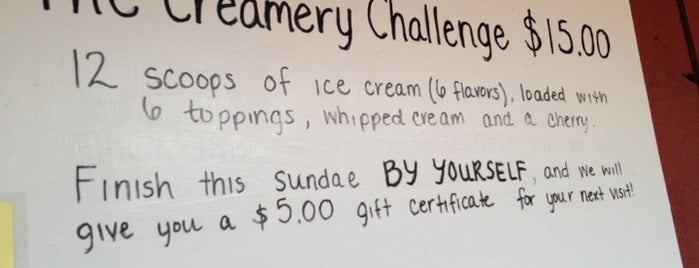 The Creamery Challenge $15.00
12 scoops of ice cream (6 flavors), loaded with
6 toppings, whipped cream and a cherry.
Finish this sundae BY YOURSELF, and we will
give you a $5.00 gift certificate for your next visit!